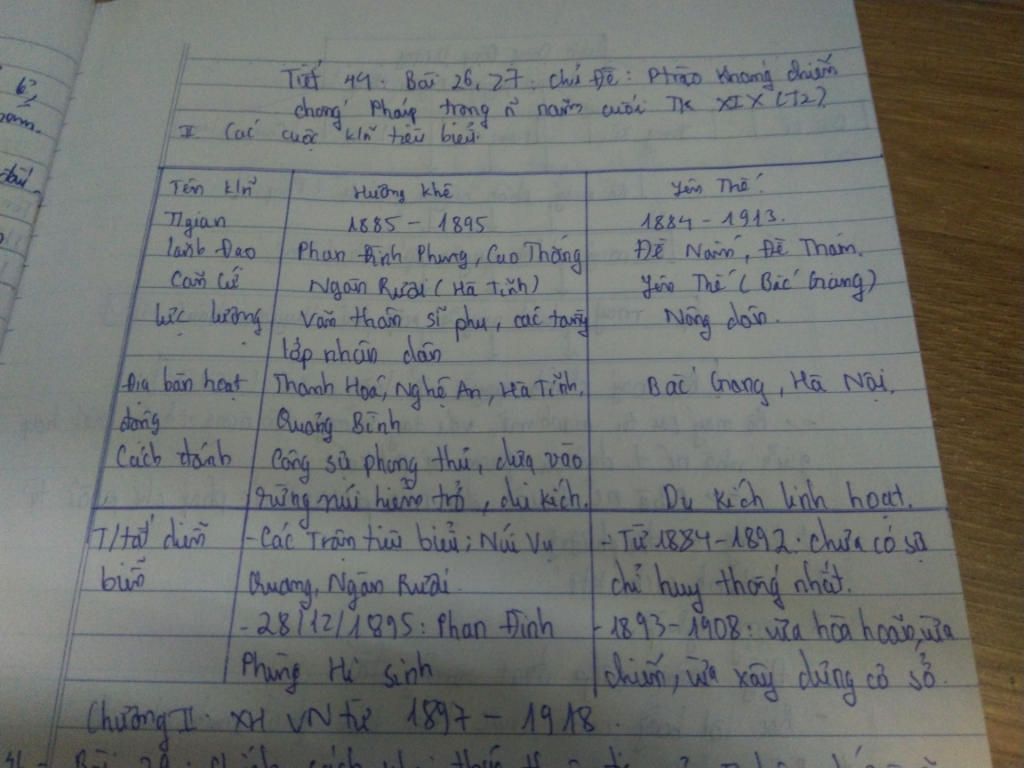 Tiết 44: Bài 26, 27: Chủ Đề: Ptrào kháng chiến
chống Pháp trong n năm cuối TK XIX (T2)
II Các cuộc k/n tiêu biểu.
Tên k/n Hương Khê Yên Thế.
T gian 1885 - 1895 1884 - 1913.
lãnh Đạo Phan Đình Phùng, Cao Thắng Đề Nắm, Đề Thám.
Căn Cứ Ngàn Rươi (Hà Tĩnh) Yên Thế (Bắc Giang)
lực lượng Văn thân sĩ phu, các tầng Nông dân.
lớp nhân dân
Địa bàn hoạt Thanh Hoá, Nghệ An, Hà Tĩnh, Bắc Giang, Hà Nội.
động Quảng Bình
Cách đánh Công sự phòng thủ, dựa vào
rừng núi hiểm trở, du kích. Du kích linh hoạt.
T/tắt diễn - Các Trận tiêu biểu; Núi Vụ - Từ 1884-1892: chưa có sự
biến Quang, Ngàn Rươi. chỉ huy thống nhất.
- 28/12/1895: Phan Đình - 1893-1908: vừa hòa hoãn, vừa
Phùng Hi sinh chiến, vừa xây dựng cơ sở.
Chương II: XH VN từ 1897 - 1918.